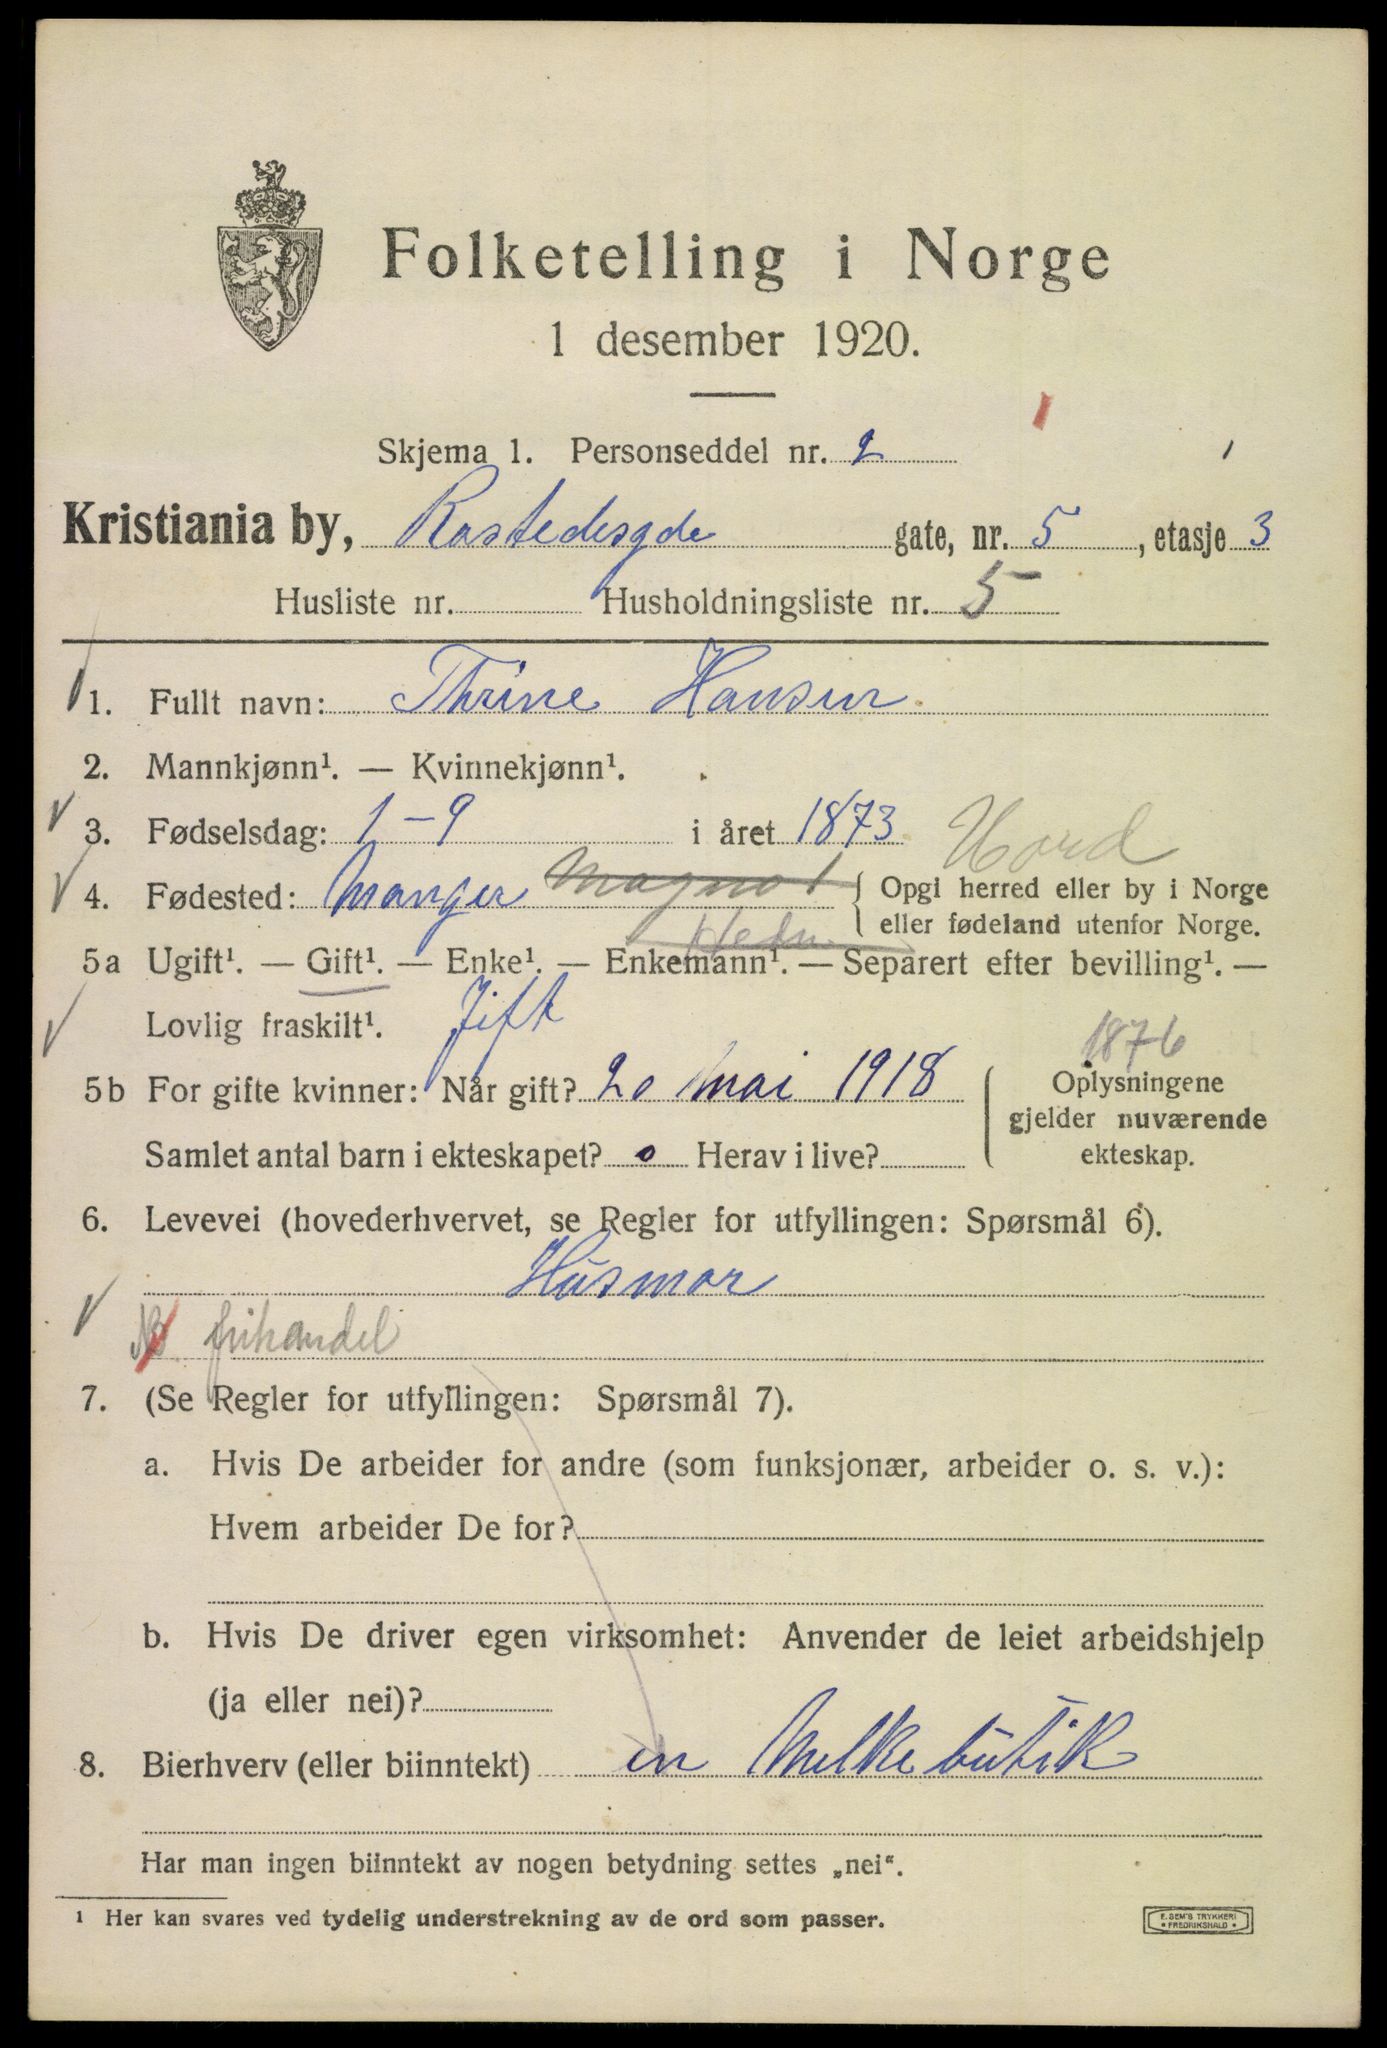 Folketelling i Norge
1 desember 1920.
Skjema 1. Personseddel nr. 2
Kristiania by, Rostedsgde gate, nr. 5, etasje 3
Husliste nr. Husholdningsliste nr. 5
1. Fullt navn: Thrine Hansen
2. Mannkjønn¹. — Kvinnekjønn¹.
3. Fødselsdag: 1-9 i året 1873
Hord
4. Fødested: Manger Opgi herred eller by i Norge
eller fødeland utenfor Norge.
Hedm.
5a Ugift¹. — Gift¹. — Enke¹. — Enkemann¹. — Separert efter bevilling¹. —
Lovlig fraskilt¹. Jift
1876
5b For gifte kvinner: Når gift? 20 Mai 1918 Oplysningene
gjelder nuværende
Samlet antal barn i ekteskapet? 0 Herav i live? ekteskap.
6. Levevei (hovederhvervet, se Regler for utfyllingen: Spørsmål 6).
Husmor
NB frihandel
7. (Se Regler for utfyllingen: Spørsmål 7).
a. Hvis De arbeider for andre (som funksjonær, arbeider o. s. v.):
Hvem arbeider De for?
b. Hvis De driver egen virksomhet: Anvender de leiet arbeidshjelp
(ja eller nei)?
8. Bierhverv (eller biinntekt) en Melkebutik
Har man ingen biinntekt av nogen betydning settes „nei“.
¹ Her kan svares ved tydelig understrekning av de ord som passer.
E. SEM'S TRYKKERI
• FREDRIKSHALD •